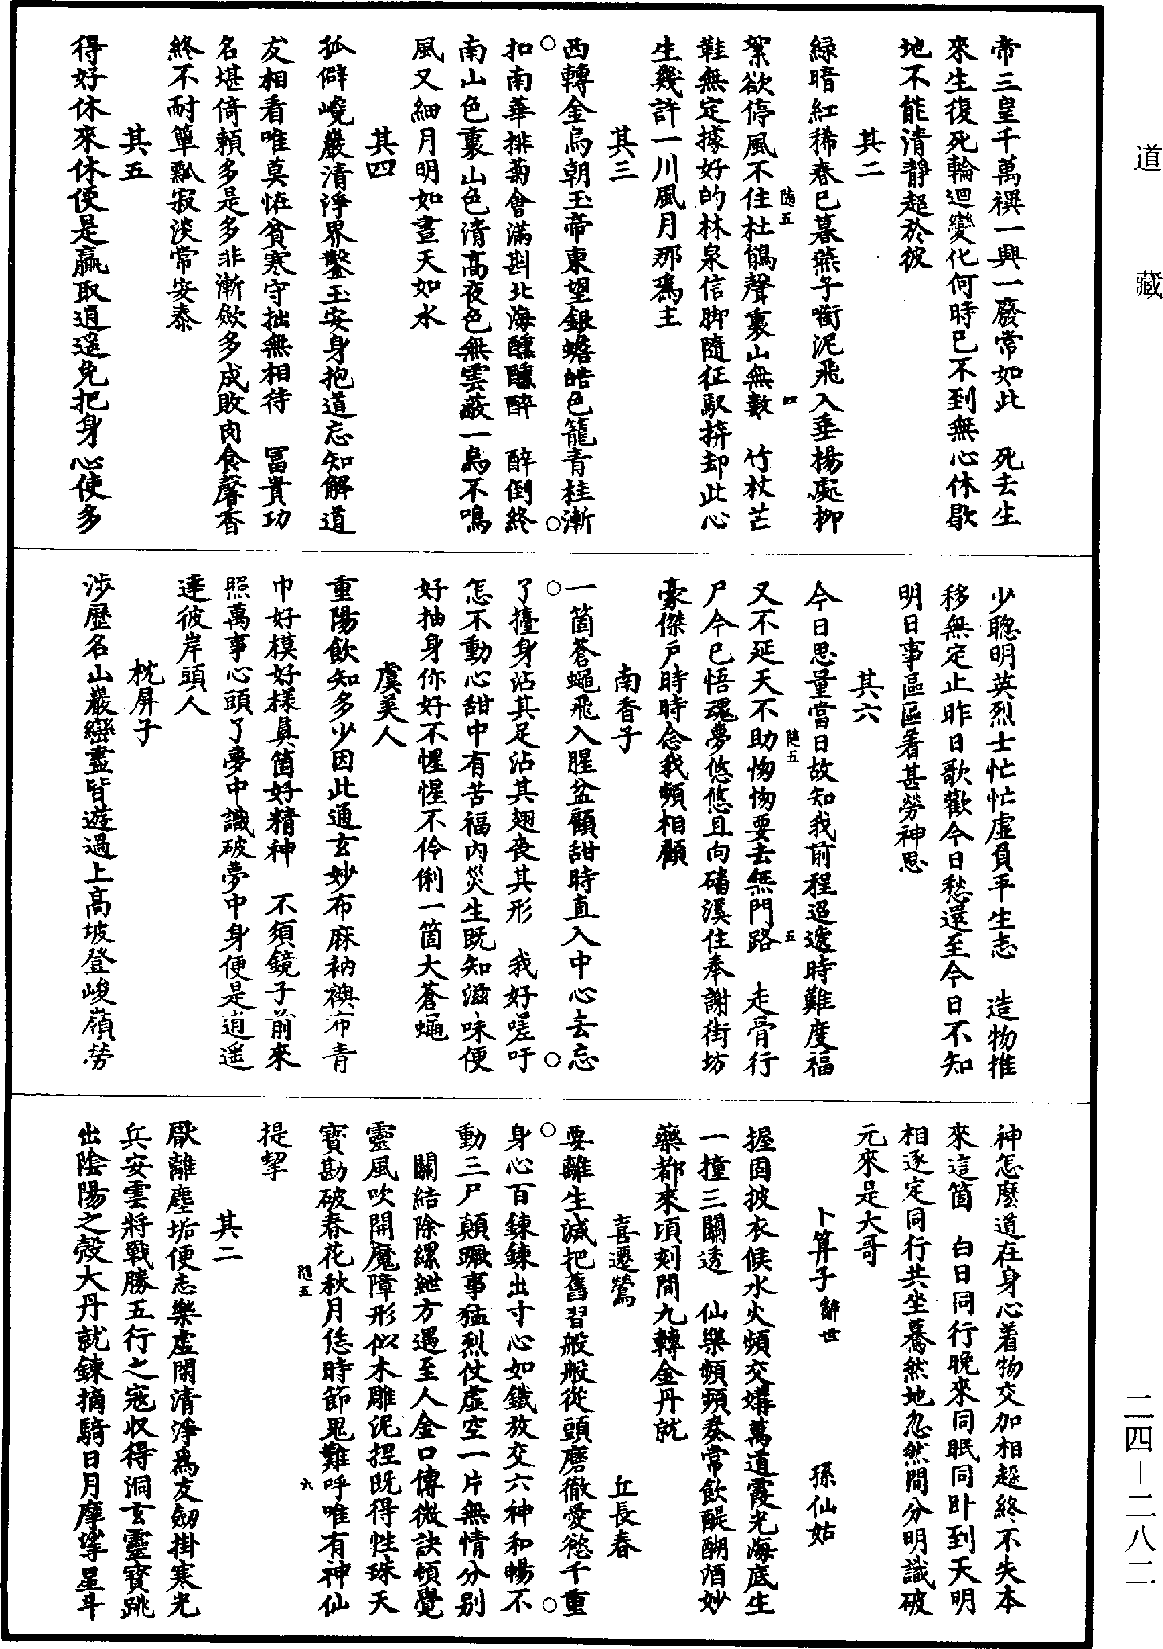 道藏
帝三皇千萬禩一興一廢常如此　死去生
來生復死輪迴變化何時已不到無心休歇
地不能清靜超於彼
其二
綠暗紅稀春已暮燕子銜泥飛入垂楊處柳
隨五
四
絮欲停風不住杜鵑聲裏山無數　竹杖芒
鞋無定據好的林泉信脚隨征馭拚却此心
生幾許一川風月那爲主
其三
西轉金烏朝玉帝東望銀蟾皓色籠青桂漸
扣南華排菊會滿斟北海醺醺醉　醉倒終
南山色裏山色清高夜色無雲蔽一鳥不鳴
風又細月明如晝天如水
其四
孤僻嶢巖清淨界鑿玉安身抱道忘知解道
友相看唯莫恠貧寒守拙無相待　冨貴功
名堪倚賴多是多非漸斂多成敗肉食馨香
終不耐簞瓢寂淡常安泰
其五
得好休來休便是贏取逍遥免把身心使多
少聰明英烈士忙忙虛負平生志　造物推
移無定止昨日歌歡今日愁還至今日不知
明日事區區着甚勞神思
其六
今日思量當日故知我前程迢遞時難度福
隨五
五
又不延天不助惚惚要去無門路　走骨行
尸今已悟魂夢悠悠且向磻溪住奉謝街坊
豪傑戶時時念我頻相顧
南香子
一箇蒼蠅飛入腥盆顧甜時直入中心去忘
了擡身沾其足沾其翅喪其形　我好嗟吁
怎不動心甜中有苦福內災生既知滋味便
好抽身你好不惺惺不伶俐一箇大蒼蠅
虞美人
重陽飲知多少因此通玄妙布麻衲襖布青
巾好模好樣真箇好精神　不須鏡子前來
照萬事心頭了夢中識破夢中身便是逍遥
達彼岸頭人
枕屏子
涉歷名山巖巒盡皆遊過上高坡登峻嶺勞
神怎麼道在身心着物交加相趂終不失本
來這箇　白日同行晚來同眠同卧到天明
相逐定同行共坐驀然地忽然間分明識破
元來是大哥
卜算子辭世　孫仙姑
握固披衣候水火頻交媾萬道霞光海底生
一撞三關透　仙樂頻頻奏常飲醍醐酒妙
藥都來頃刻間九轉金丹就
喜遷鶯　丘長春
要離生滅把舊習般般從頭磨徹愛慾千重
身心百鍊鍊出寸心如鐵放交六神和暢不
動三尸顛蹶事猛烈仗虛空一片無情分别
關結除縲紲方遇至人金口傳微訣頓覺
靈風吹開魔障形似木雕泥捏既得性珠天
寳勘破春花秋月恁時節鬼難呼唯有神仙
隨五
六
提挈
其二
厭離塵垢便志樂虛閑清淨爲友劒掛寒光
兵安雲將戰勝五行之寇収得洞玄靈寳跳
出陰陽之殼大丹就鍊摘騎日月摩挲星斗
二四—二八二